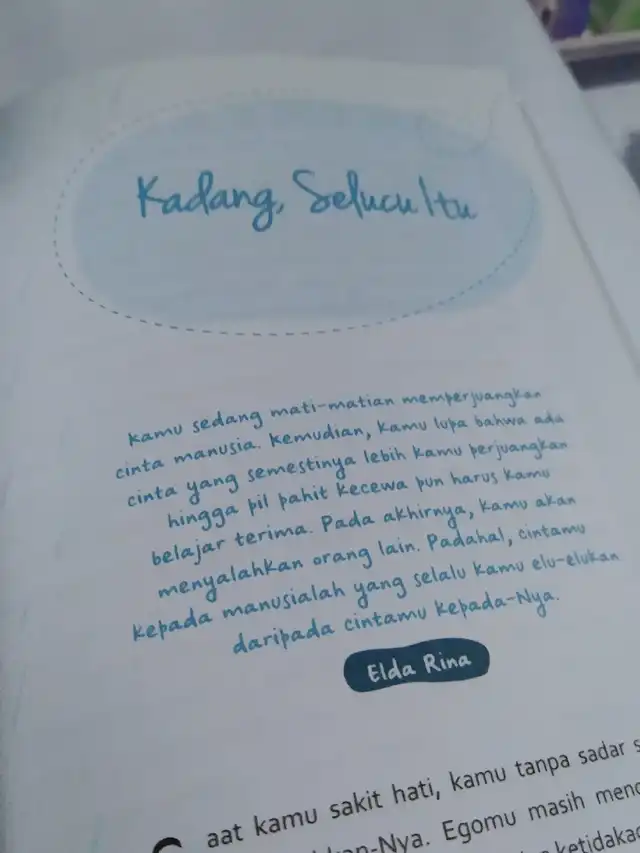 Kadang, Selucu Itu
kamu sedang mati-matian memperjuangkan
cinta manusia. kemudian, kamu lupa bahwa ada
cinta yang semestinya lebih kamu perjuangkan
hingga pil pahit kecewa pun harus kamu
belajar terima. Pada akhirnya, kamu akan
menyalahkan orang lain. Padahal, cintamu
kepada manusialah yang selalu kamu elu-elukan
daripada cintamu kepada-Nya.
Elda Rina
Saat kamu sakit hati, kamu tanpa sadar
Egomu masih